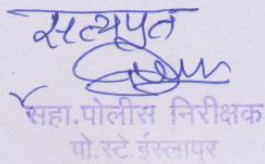 सत्यप्रत
सहा.पोलीस निरीक्षक
पो.स्टे.ईस्लापुर